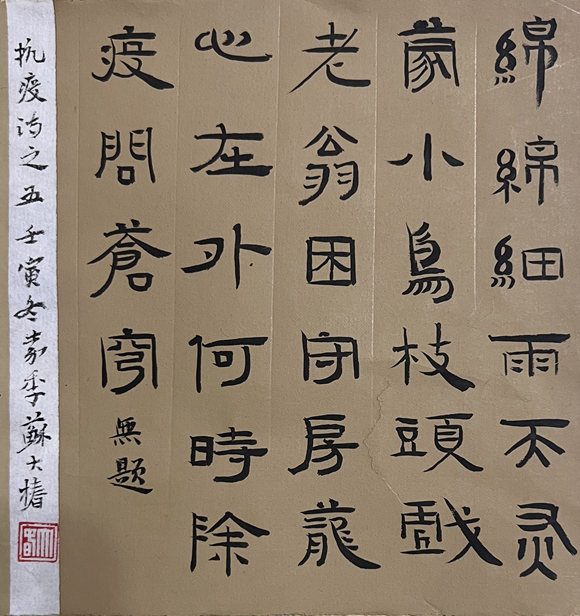 綿綿細雨天灰
蒙小鳥枝頭戲
老翁困守房龍
心在外何時除
疫問蒼穹 無題
抗疫詩之五 壬寅冬季蘇大椿